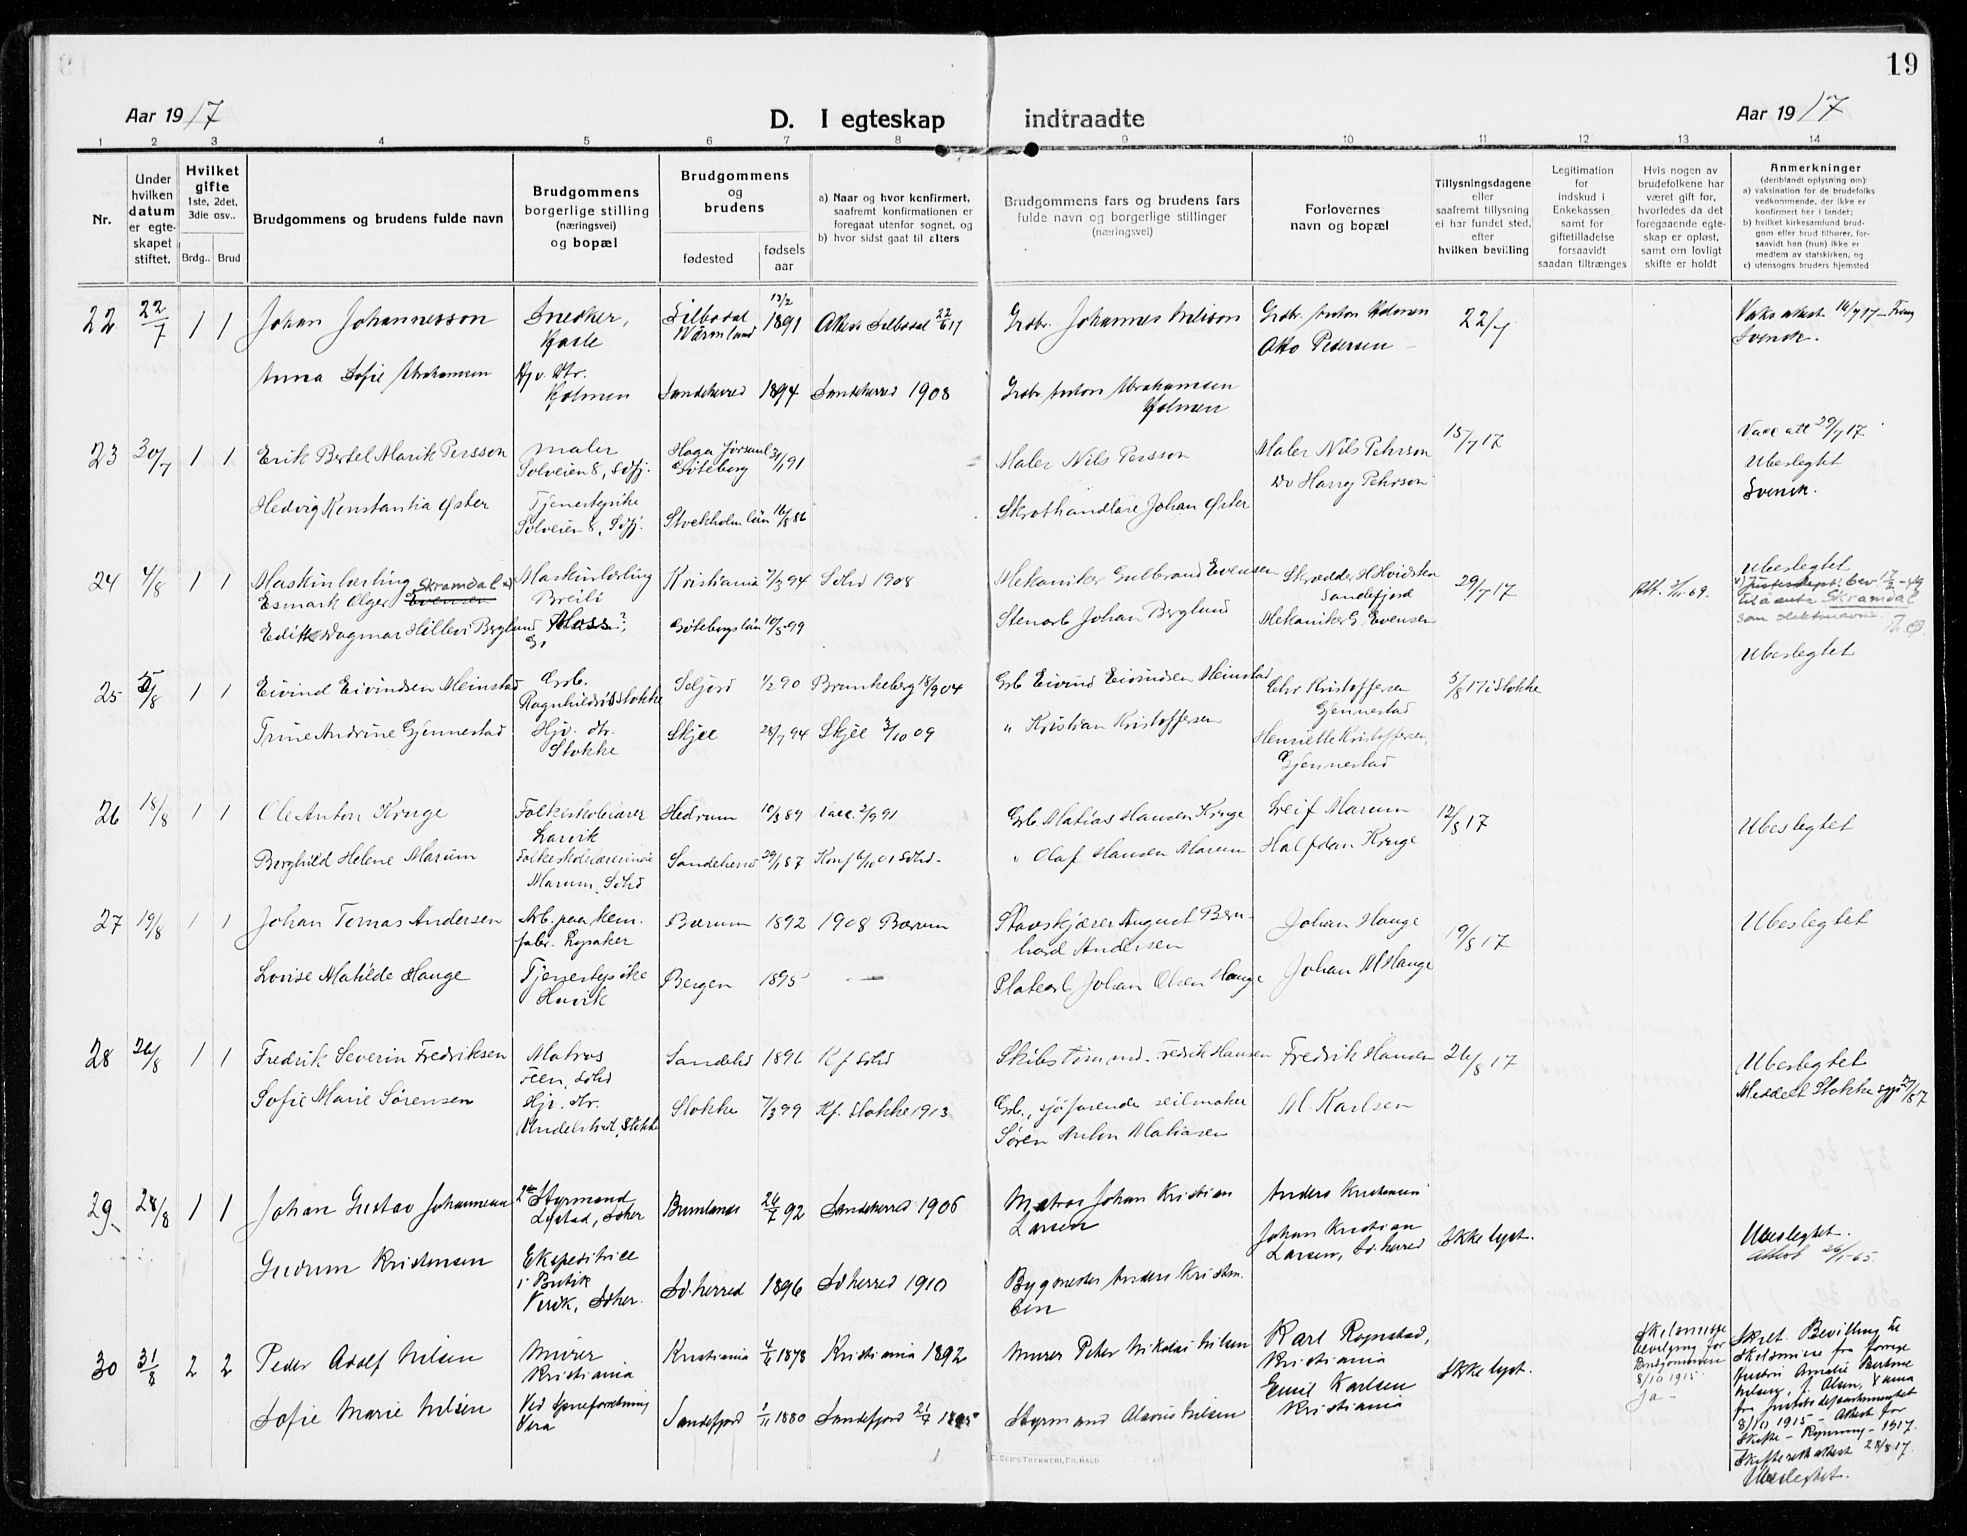 19
Aar 1917
D. I egteskap indtraadte
Aar 1917
1 2 3 4 5 6 7 8 9 10 11 12 13 14
Nr.
Under hvilken datum er egteskapet stiftet.
Hvilket gifte 1ste, 2det, 3die osv..
Brdg.. Brud
Brudgommens og brudens fulde navn
Brudgommens borgerlige stilling (næringsvei) og bopæl
Brudgommens og brudens
fødested
fødsels aar
a) Naar og hvor konfirmert, saafremt konfirmationen er foregaat utenfor sognet, og
b) hvor sidst gaat til alters
Brudgommens fars og brudens fars fulde navn og borgerlige stillinger (næringsvei)
Forlovernes navn og bopæl
Tillysningsdagene eller saafremt tillysning ei har fundet sted, efter hvilken bevilling
Legitimation for indskud i Enkekassen samt for giftetilladelse forsaavidt saadan tiltrænges
Hvis nogen av brudefolkene har været gift før, hvorledes da det foregaaende egteskap er opløst, samt om lovligt skifte er holdt
Anmerkninger (deriblandt oplysning om):
a) vaksination for de brudefolks vedkommende, der ikke er konfirmert her i landet;
b) hvilket kirkesamfund brudgom eller brud tilhører, forsaavidt han (hun) ikke er medlem av statskirken, og
c) utensogns bruders hjemsted
22 22/7 1 1 Johan Johannesson
Snedker,
Silbodal Wärmland 13/2 1891
Attest Silbodal 22/6 17
Grdbr. Johannes Nilsson
Grdbr. Anton Holmen
Otto Pedersen
22/7
Svensk.
Anna Sofie Abrahamsen
Hjv. dtr. Holmen
Sandeherred 1894 Sandeherred 1908
Grdbr Anton Abrahamsen Holmen
23 30/7 1 1 Erik Bertel Marik Persson
Maler
Solveien 8, Sdfj.
Haga Göteborg 91
Maler Nils Persson
Maler Nils Pehrson
do Harry Pehrson
15/7 17
Ubeslegtet
Svensk.
Hedvig Konstantia Öster
Tjenestepike
Solveien 8, Sdfj.
Stockholm län 16/8 86
Skrothandlare Johan Öster
24 4/8 1 1 Maskinlærling
Esmark Olger Evensen Skramdal
Maskinlærling
Kristiania 7/3 94 Sdhd 1908
Mekaniker Gulbrand Evensen
Sandefjord
Mekaniker G. Evensen
29/7 17
Ubeslegtet
til å anta Skramdal
som slektsnavn.
Edith Dagmar Hillevi Berglund
Moss?
Göteborgs län 10/5 99
Stenarb Johan Berglund
Ubeslegtet
25 5/8 1 1 Eivind Eivindsen Meinstad
Grb.
Ragnhildsrød Stokke
Seljord 1/2 90 Brunkeberg 18/9 04
Grb Eivind Eivindsen Meinstad
Chr Kristoffersen Gjennestad
5/8 17 i Stokke
Trine Andrine Gjennestad
Hjv. dtr. Stokke
Skjee 28/7 94 Skjee 3/10 09
" Kristian Kristoffersen
Henriette Kristoffersen, Gjennestad
26 18/8 1 1 Ole Anton Kruge
Folkeskolelærer
Larvik
Hedrum 10/3 89 Vacc. 2/9 91
Grb. Matias Hansen Kruge
Leif Marum
Halfdan Kruge
12/8 17
Ubeslegtet
Borghild Helene Marum
Folkeskolelærerinde
Marum, Sdhd
Sandeherred 29/1 87 Konf 6/10 01 Sdhd
" Olaf Hansen Marum
27 19/8 1 1 Johan Tomas Andersen
Arb. paa kem. fabr. Lysaker
Bærum 1892 1908 Bærum
Stavskjærer August Bernhard Andersen
Johan Hauge
Johan M Hauge
19/8 17
Ubeslegtet
Lovise Matilde Hauge
Tjenestepike
Huvik
Bergen 1895 —
Platearb Johan Olsen Hauge
28 26/8 1 1 Fredrik Severin Fredriksen
Matros
Feen, Sdhd
Sandehd 1896 Kf Sdhd
Skibstømmd. Fredrik Hansen
Fredrik Hansen
M. Karlsen
26/8 17
Ubeslegtet
Meddelt Stokke sgpr 27/8 17
Sofie Marie Sørensen
Hjv. dtr.
Stokke 7/3 99 Kf. Stokke 1913
Grb., sjøfarende seilmaker
Søren Anton Matiasen
29. 28/8 1 1 Johan Gustav Johannessen
2den Styrmand
Lystad, Sdher
Brunlanes 26/7 92 Sandeherred 1906
Matros Johan Kristian Larsen
Anders Kristensen
Johan Kristian Larsen, Sd.herred
Ikke lyst.
Ubeslegtet.
Attest 26/1-65.
Gudrun Kristensen
Ekspeditrice
i Butik
Virik, Sdher.
Sd.herred 1896 Sdherred 1910
Bygmester Anders Kristensen
30 31/8 2 2 Peder Adolf Nilsen
Murer
Kristiania
Kristiania 4/6 1878 Kristiania 1892
Murer Peter Nikolai Nilsen
Karl Rognstad, Kristiania
Emil Karlsen Kristiania
Ikke lyst.
Skilsmisse
bevilgning for
Brudgommen
8/10 1915.
Ja —
Skret. Bevilling til
Skilsmisse fra forrige
hustru Amalie Bertine
Nilsen, f. Olsen,
fra Justitsdepartementet
8/10 1915 — Attest for
Skifte — 1917.
Skifteretsattest 28/8 17.
Ubeslegtet.
Sofie Marie Nilsen
Vera
Sandefjord 1/11 1880 Sandefjord 21/7 1895
Styrmand Alavus Nilsen
E. SEM'S TRYKKERI, FR.HALD